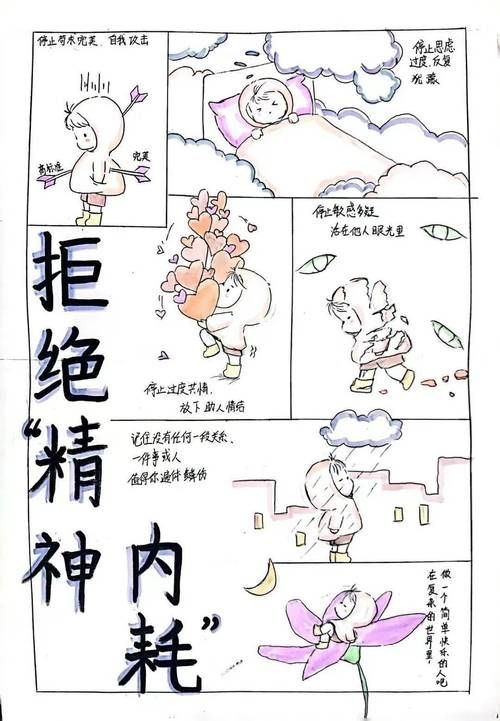 停止苛求完美、自我攻击
高标准
完美
停止思虑
过度,反复
犹豫
停止过度共情,
放下助人情结
停止敏感多疑
活在他人眼光里
记住没有任何一段关系、
一件事或人
值得你遍体鳞伤
做一个简单快乐的人吧
在复杂的世界里,
拒绝
“精神
内耗”